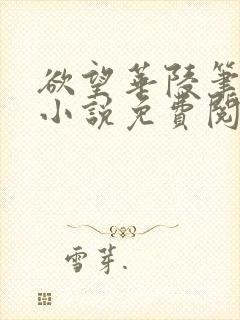 欲望華陵筆
小説免費閱
雪芽.